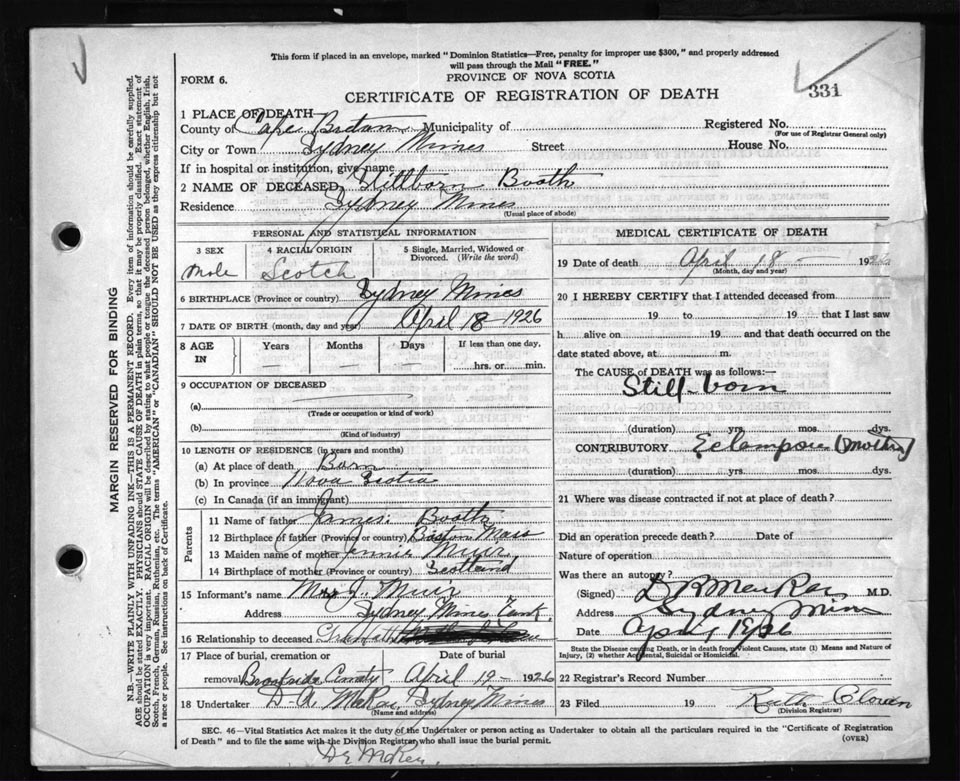 This form if placed in an envelope, marked "Dominion Statistics—Free, penalty for improper use $300," and properly addressed
will pass through the Mail "FREE."
FORM 6. PROVINCE OF NOVA SCOTIA
331
CERTIFICATE OF REGISTRATION OF DEATH
1 PLACE OF DEATH
County of Cape Breton Municipality of Registered No.
(For use of Registrar General only)
City or Town Sydney Mines Street House No.
If in hospital or institution, give name
2 NAME OF DECEASED Stillborn Booth
Residence Sydney Mines
(Usual place of abode)
PERSONAL AND STATISTICAL INFORMATION
3 SEX 4 RACIAL ORIGIN 5 Single, Married, Widowed or
Divorced. (Write the word)
Male Scotch
6 BIRTHPLACE (Province or country) Sydney Mines
7 DATE OF BIRTH (month, day and year) April 18 - 1926
8 AGE IN Years Months Days If less than one day,
hrs. or min.
9 OCCUPATION OF DECEASED
(a)
(Trade or occupation or kind of work)
(b)
(Kind of industry)
10 LENGTH OF RESIDENCE (in years and months)
(a) At place of death Born
(b) In province Nova Scotia
(c) In Canada (if an immigrant)
Parents
11 Name of father James Booth
12 Birthplace of father (Province or country) Boston Mass
13 Maiden name of mother Jennie Muir
14 Birthplace of mother (Province or country) Scotland
15 Informant's name Mrs J. Muir
Address Sydney Mines
16 Relationship to deceased
17 Place of burial, cremation or Date of burial
removal Brookside County April 19 - 1926
18 Undertaker D. A. McRae, Sydney Mines
(Name and address)
MEDICAL CERTIFICATE OF DEATH
19 Date of death April 18 - 192
(Month, day and year)
20 I HEREBY CERTIFY that I attended deceased from
19 to 19 that I last saw
h alive on 19 and that death occurred on the
date stated above, at m.
The CAUSE of DEATH was as follows:—
Still-born
(duration) yrs. mos. dys.
CONTRIBUTORY (Mother)
(duration) yrs. mos. dys.
21 Where was disease contracted if not at place of death?
Did an operation precede death? Date of
Nature of operation
Was there an autopsy?
(Signed) D R MacRae M.D.
Address Sydney Mines
Date 1926
State the Disease Causing Death, or in death from Violent Causes, state (1) Means and Nature of
Injury, (2) whether Accidental, Suicidal or Homicidal.
22 Registrar's Record Number
23 Filed 19 Ruth
(Division Registrar)
SEC. 46—Vital Statistics Act makes it the duty of the Undertaker or person acting as Undertaker to obtain all the particulars required in the "Certificate of Registration
of Death" and to file the same with the Division Registrar who shall issue the burial permit. (OVER)
MARGIN RESERVED FOR BINDING
N.B.—WRITE PLAINLY WITH UNFADING INK—THIS IS A PERMANENT RECORD. Every item of information should be carefully supplied.
AGE should be stated EXACTLY. PHYSICIANS should STATE CAUSE OF DEATH in plain terms, so that it may be properly classified. Exact statement of
OCCUPATION is very important. RACIAL ORIGIN will be described by stating to what people or tongue the deceased person belonged, whether English, Irish,
Scotch, French, German, Russian, Ruthenian, etc. The terms "AMERICAN" or "CANADIAN" SHOULD NOT BE USED as they express citizenship but not
a race or people. See instructions on back of Certificate.